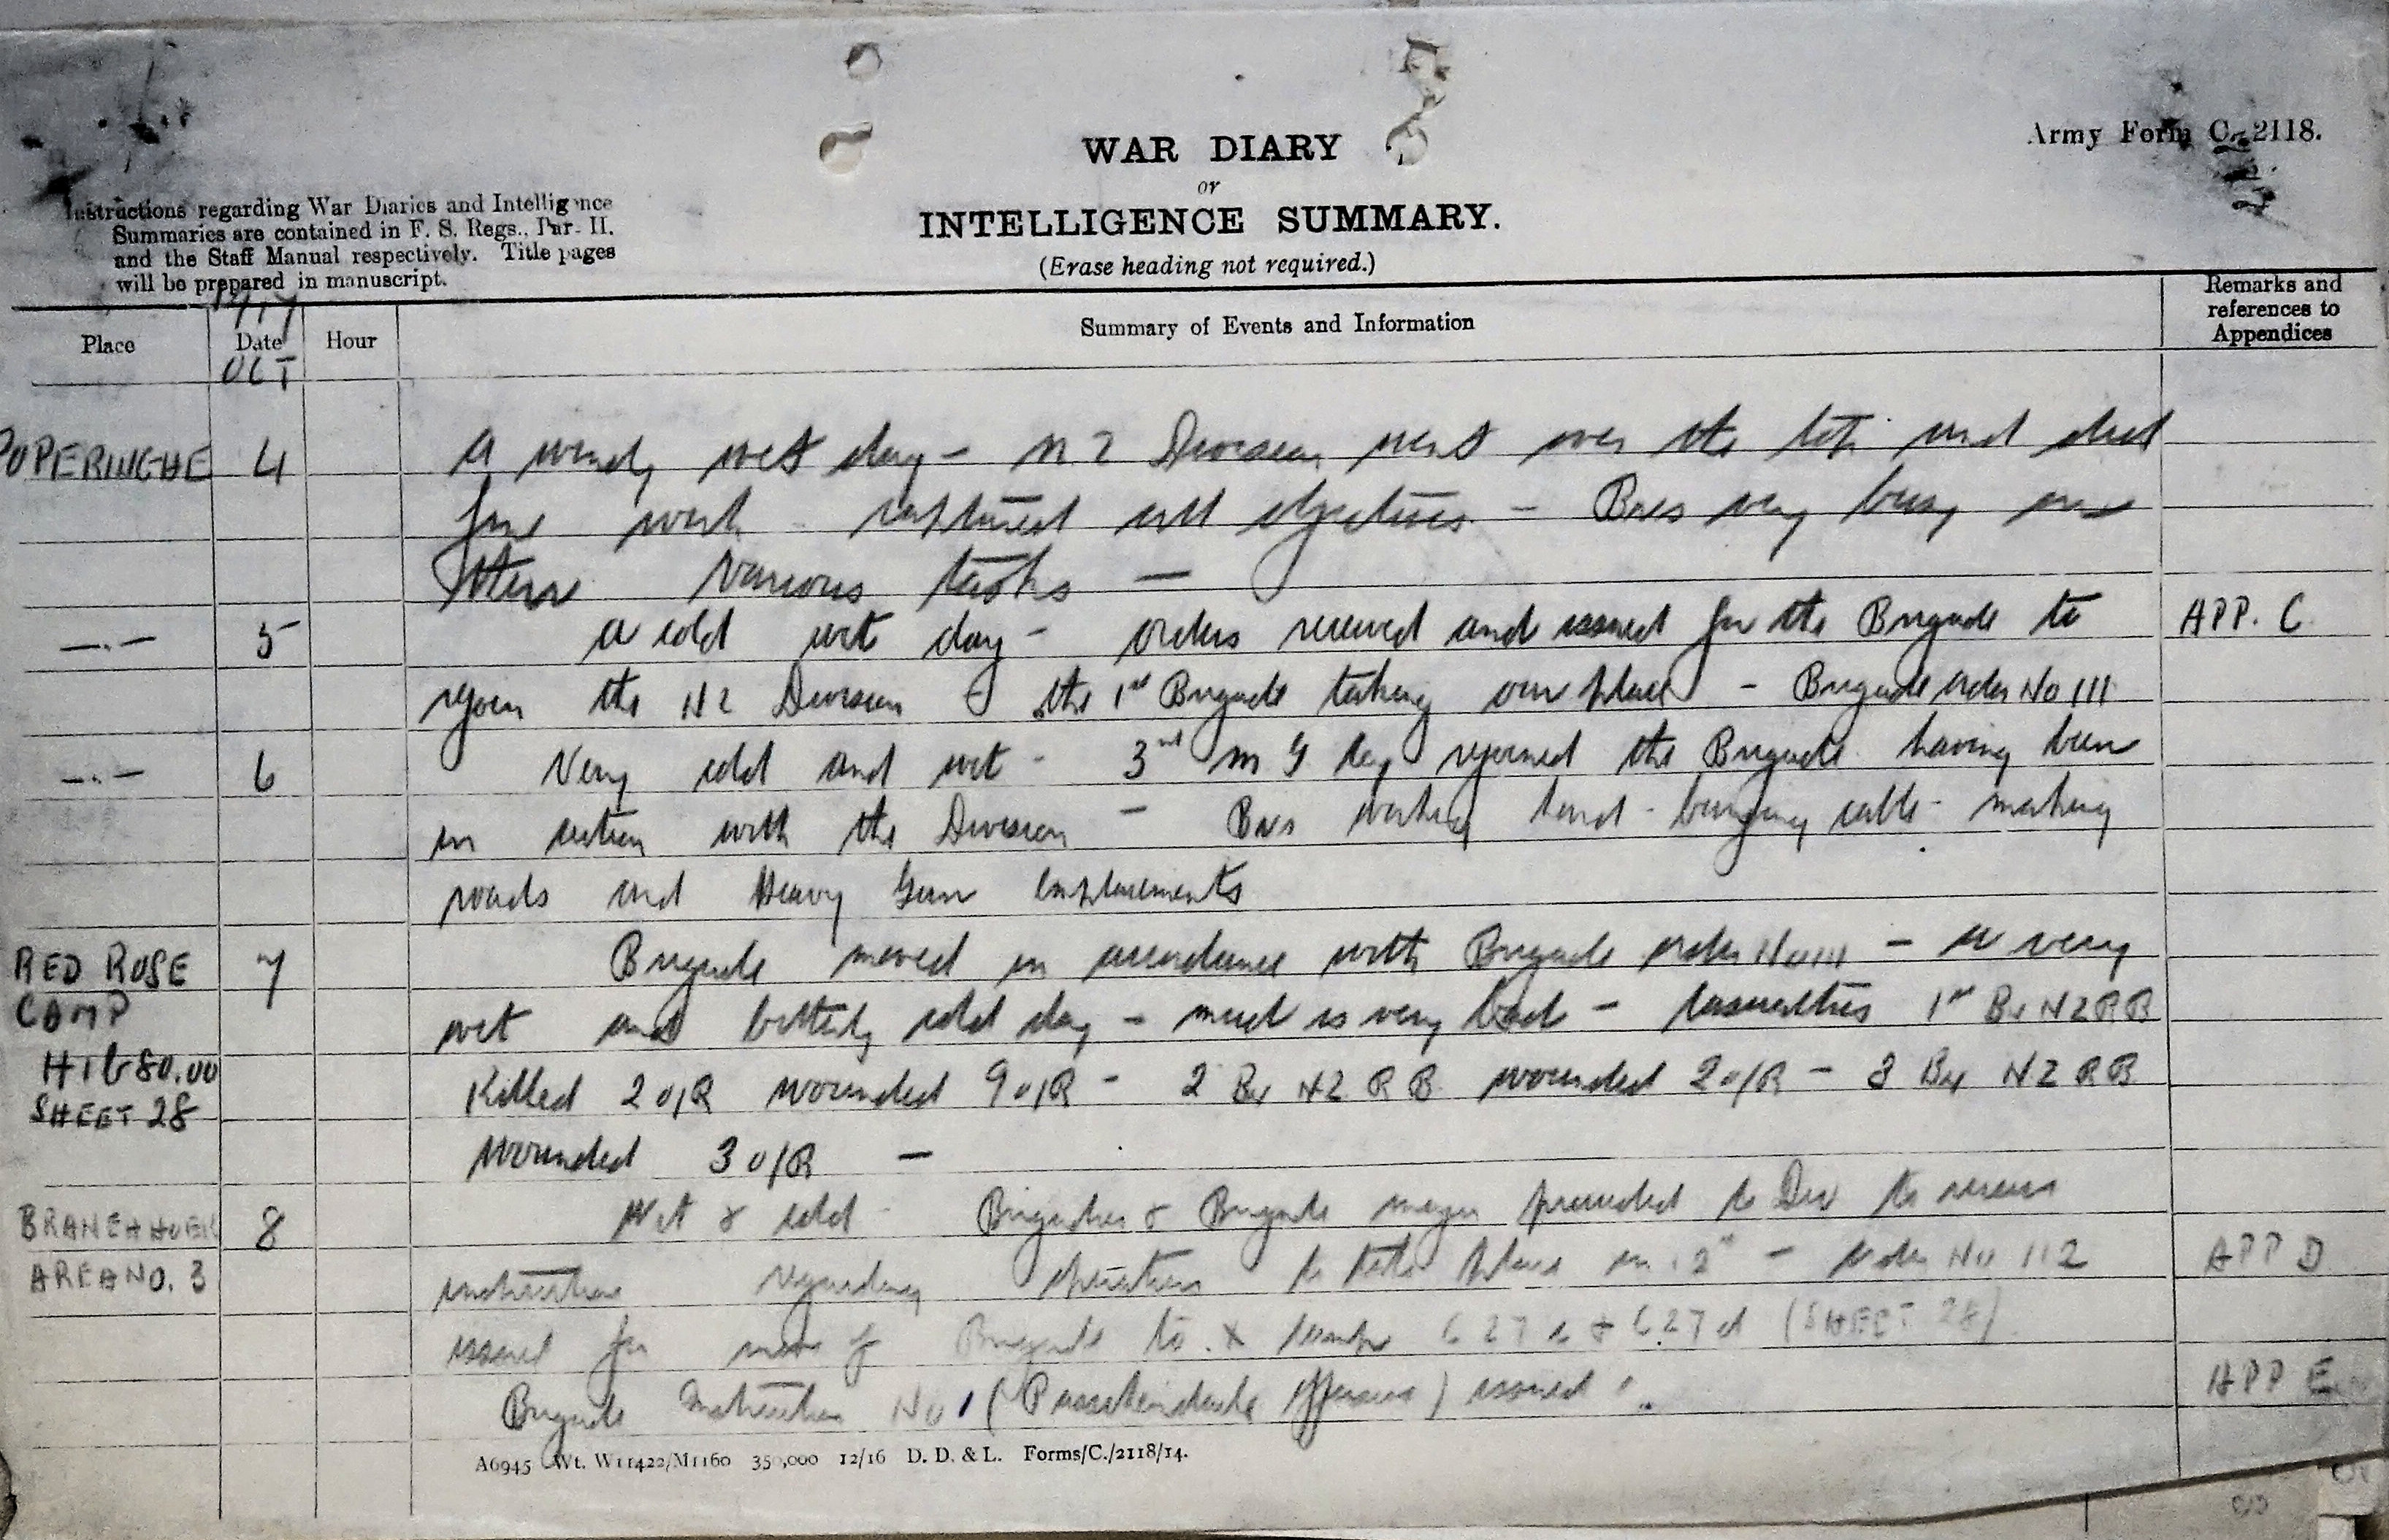 Army Form C. 2118.
WAR DIARY
or
INTELLIGENCE SUMMARY.
(Erase heading not required.)
Instructions regarding War Diaries and Intelligence
Summaries are contained in F. S. Regs., Part II.
and the Staff Manual respectively. Title pages
will be prepared in manuscript.
1917
Place Date Hour Summary of Events and Information Remarks and references to Appendices
OCT
POPERINGHE 4 A windy wet day - NZ Division went over the top and did
fine work captured all objectives - Bns very busy on
their various tasks -
—.— 5 A cold wet day - orders received and issued for the Brigade to APP. C
rejoin the NZ Division the 1st Brigade taking our place - Brigade order No 111
—.— 6 Very cold and wet - 3rd M G Coy rejoined the Brigade having been
in action with the Division - Bns working hard - burying cable - making
roads and Heavy Gun Emplacements
RED ROSE 7 Brigade moved in accordance with Brigade order No 111 - a very
CAMP wet and bitterly cold day - mud is very bad - Casualties 1st Bn NZRB
H1680.00 Killed 2 O/R wounded 9 O/R - 2 Bn NZ RB wounded 2 O/R - 3 Bn NZ RB
SHEET 28 Wounded 3 O/R -
BRANEHHOEK 8 Wet & cold - Brigadier & Brigade major proceeded to Div to receive
AREA NO. 3 instructions regarding operations to take place on 12th - order No 112 APP D
issued for move of Brigade to X C 27 c & C 27 d (SHEET 28)
Brigade Instruction No 1 (Passchendaele offensive) issued APP E
A6945 Wt. W11422/M1160 350,000 12/16 D. D. & L. Forms/C./2118/14.